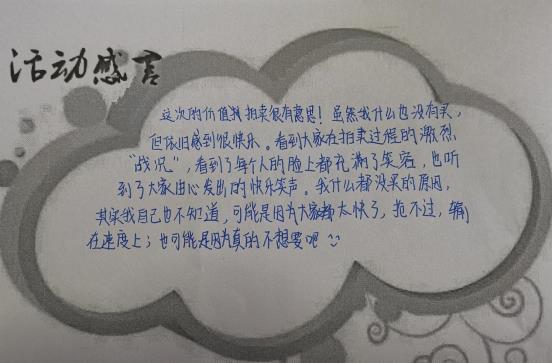 活动感言
这次的价值观拍卖很有意思！虽然我什么也没有买，
但依旧感到很快乐。看到大家在拍卖过程的激烈
“战况”，看到了每个人的脸上都充满了笑容，也听
到了大家由心发出的快乐笑声。我什么都没买的原因，
其实我自己也不知道，可能是因为大家都太快了，抢不过，输
在速度上；也可能是因为真的不想要吧